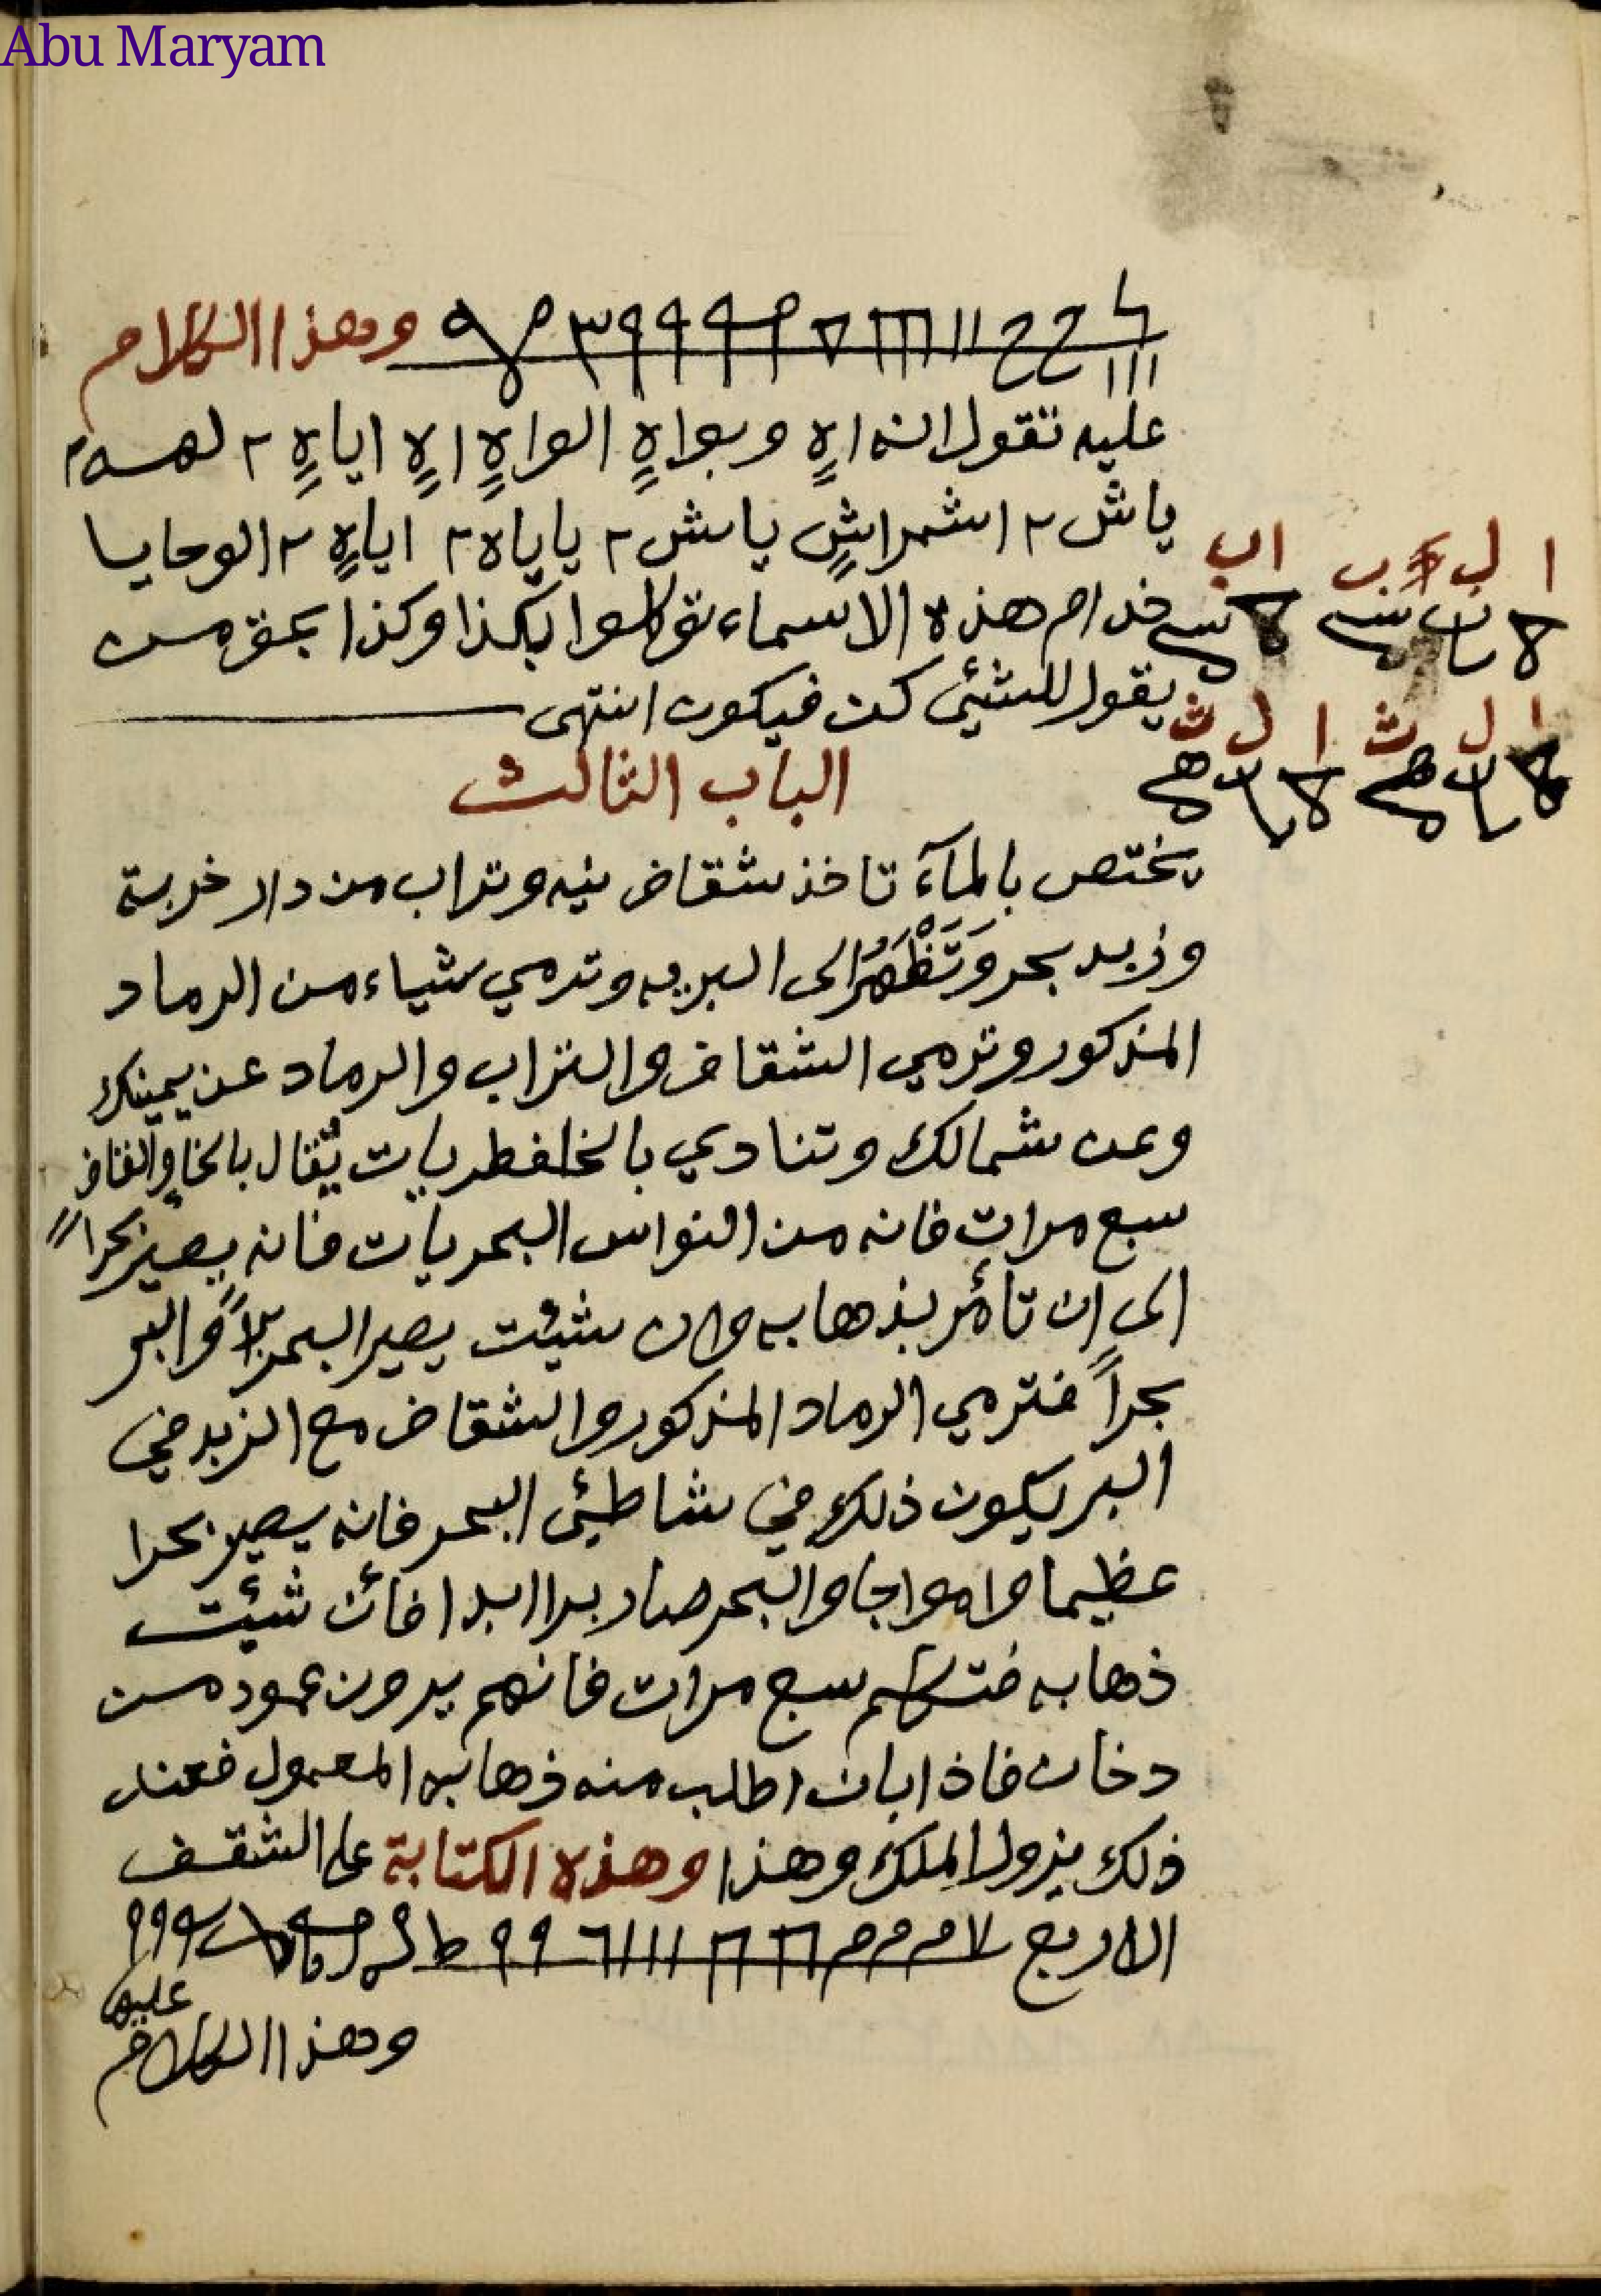 Abu Maryam
وهذا الكلام
عليه تقول انه اهٍ وبواهٍ الواهٍ اهٍ اياهٍ ٢ لهسه ٢
ياش ٢ اشمراشٍ ياش ٢ ياياه ٢ اياهٍ ٢ الوحايا
خدام هذه الاسماء توكلوا بكذا وكذا بحق من
يقول للشيئ كن فيكون انتهى
ا ل ب اب
ا ل ث ا ل ث
الباب الثالث
يختص بالمآء تاخذ شقاف نيه وتراب من دار خربة
وزبد بحر وَتَظْهَرُ الى البريه وترمي شياء من الرماد
المذكور وترمي الشقاف والتراب والرماد عن يمينك
وعن شمالك وتنادي بالخلفطريات يُقال بالخاء والقاف
سبع مرات فانه من النواس البحريات فانه يصير بحراً
الى ان تأمر بذهابه وان شيئت يصير البحر براً والبر
بحراً فترمي الرماد المذكور والشقاف مع الزبد في
البر يكون ذلك في شاطيئ البحر فانه يصير بحرا
عظيما وامواجا والبحر صار برا ابدا فائن شيئت
ذهابه سبع مرات فانهم يرون عمود من
دخان فاذا بان اطلب منه ذهابه المعمول فعند
ذلك يزول الملك وهذا وهذه الكتابة على الشقف
الاربع
عليه
وهذا الكلام